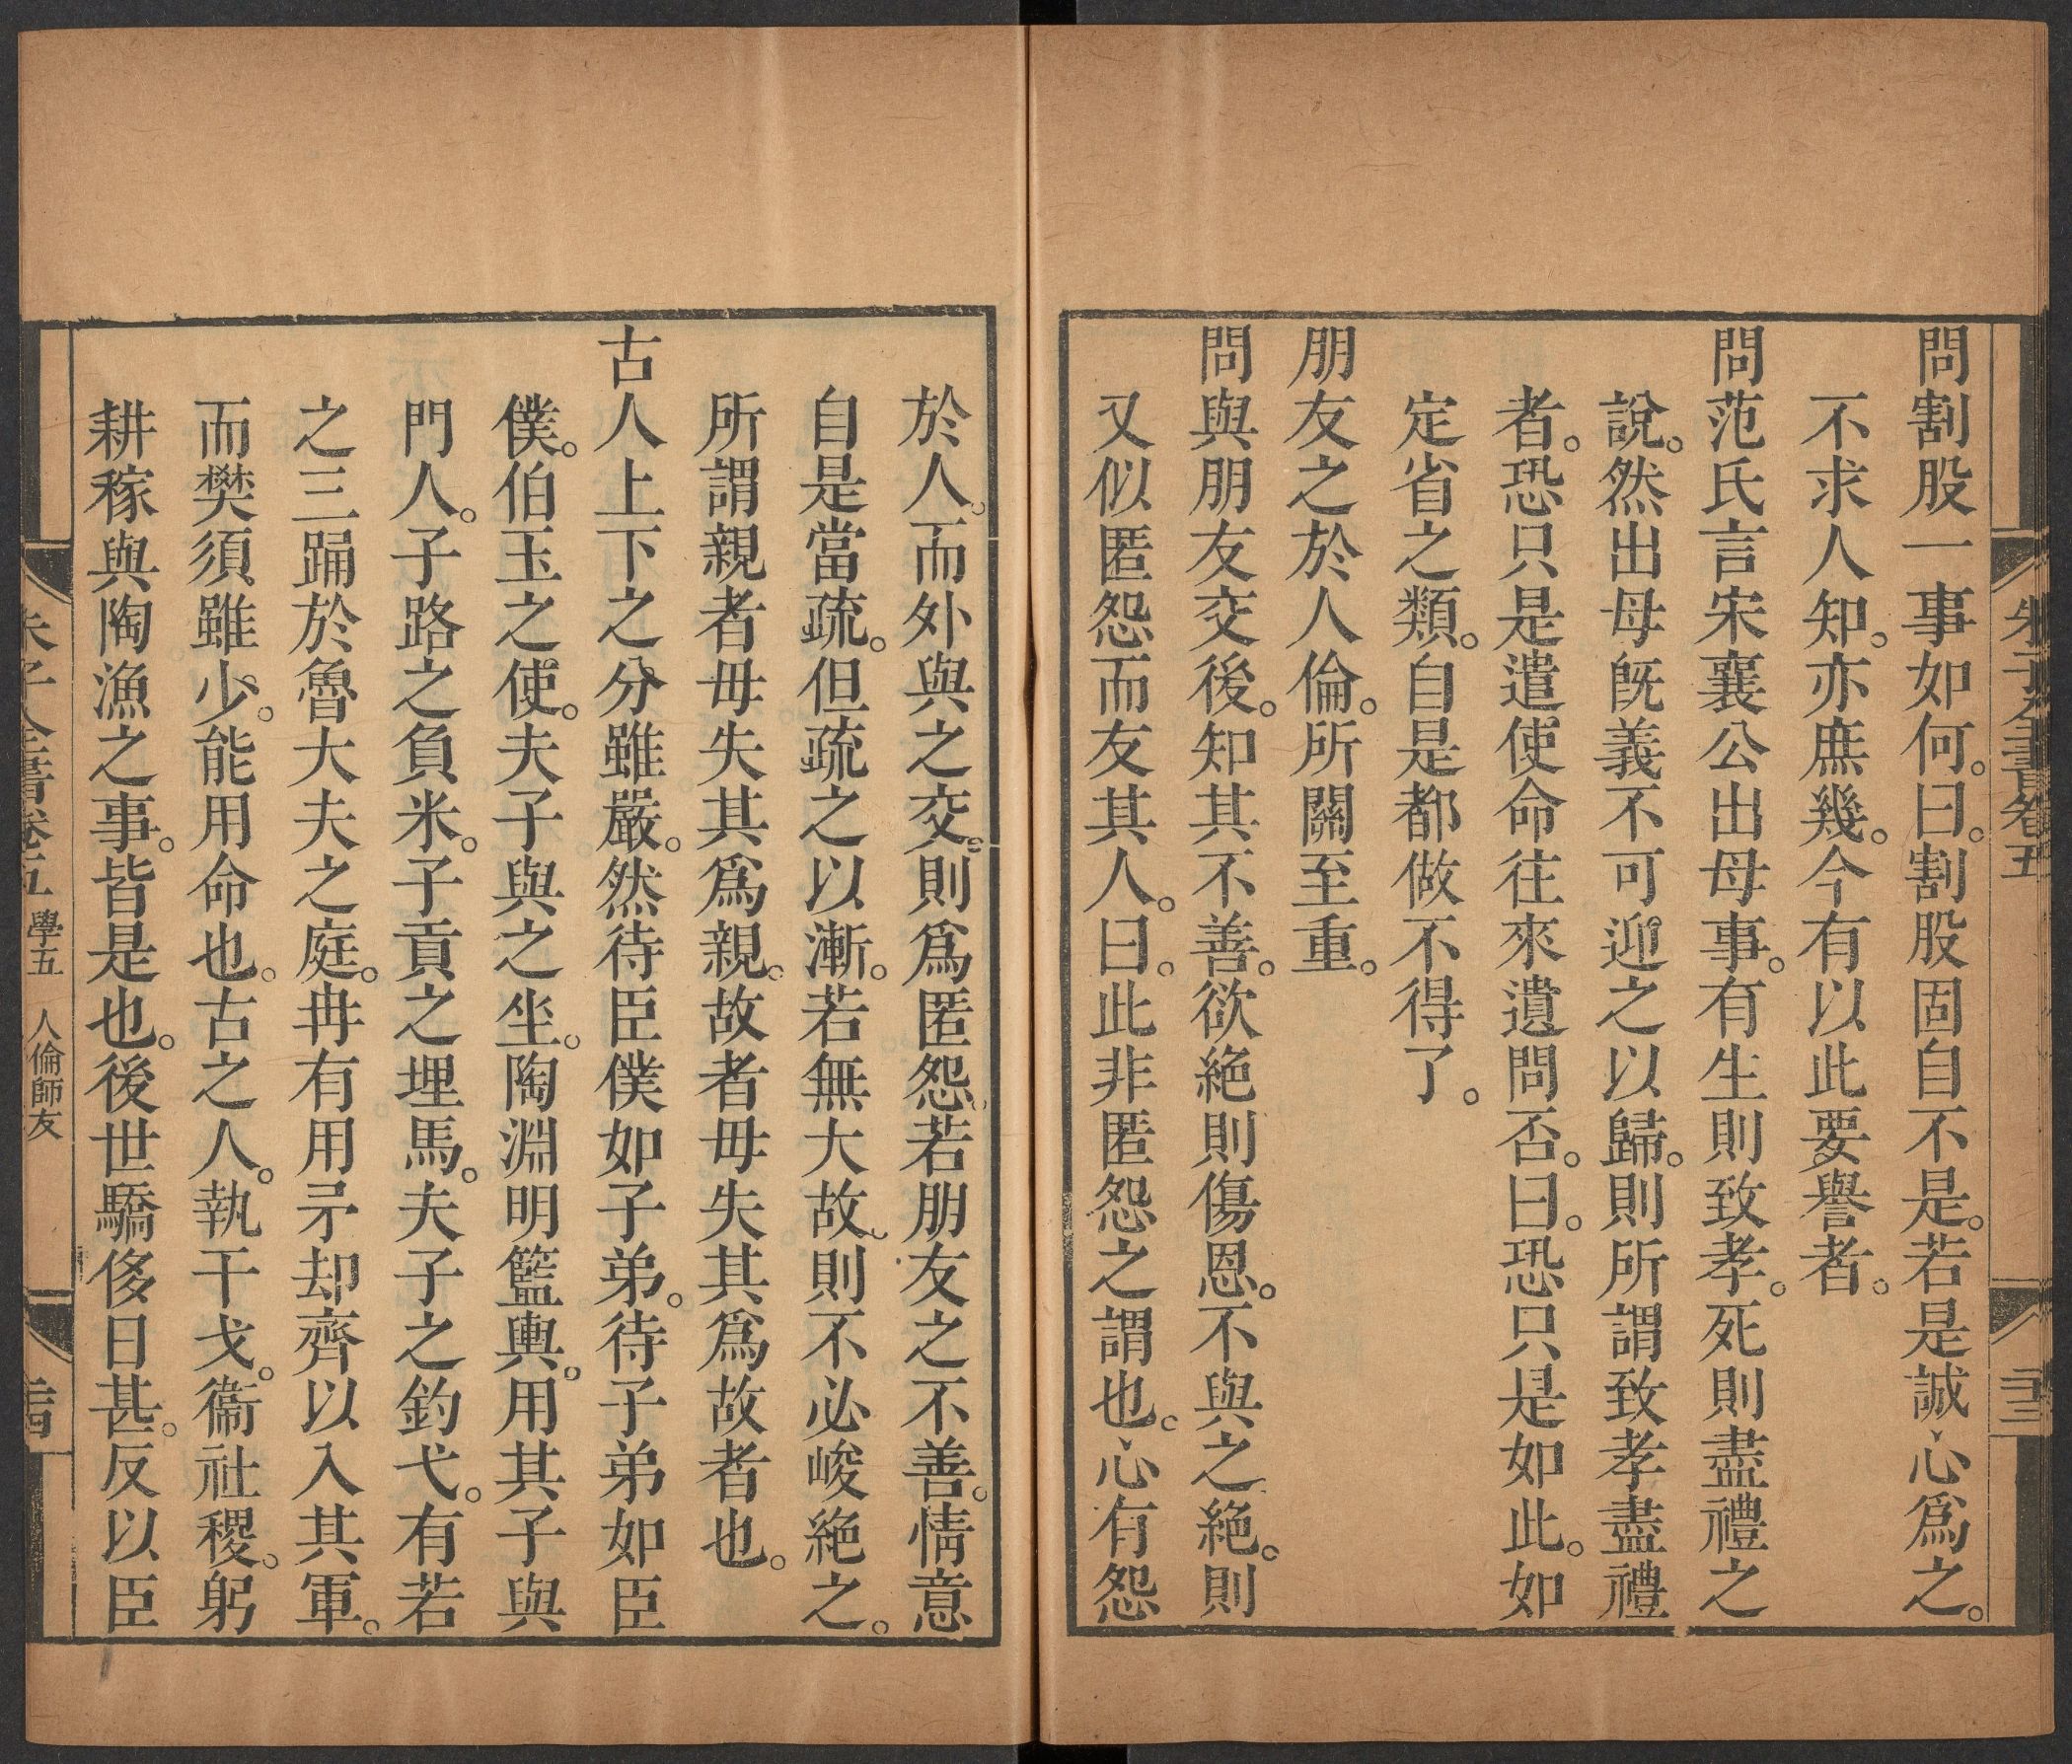 朱子全書卷五
二十三
問割股一事如何。曰。割股固自不是。若是誠心爲之。
不求人知。亦庶幾。今有以此要譽者。
問范氏言宋襄公出母事。有生則致孝。死則盡禮之
說。然出母旣義不可迎之以歸。則所謂致孝盡禮
者。恐只是遣使命往來遺問否。曰。恐只是如此。如
定省之類。自是都做不得了。
朋友之於人倫。所關至重。
問與朋友交後。知其不善。欲絶則傷恩。不與之絶。則
又似匿怨而友其人。曰。此非匿怨之謂也。心有怨
於人。而外與之交。則爲匿怨。若朋友之不善。情意
自是當疏。但疏之以漸。若無大故。則不必峻絶之。
所謂親者毋失其爲親。故者毋失其爲故者也。
古人上下之分雖嚴。然待臣僕如子弟。待子弟如臣
僕。伯玉之使。夫子與之坐。陶淵明籃輿。用其子與
門人。子路之負米。子貢之埋馬。夫子之釣弋。有若
之三踊於魯大夫之庭。冉有用矛却齊以入其軍。
而樊須雖少。能用命也。古之人。執干戈。衞社稷。躬
耕稼與陶漁之事。皆是也。後世驕侈日甚。反以臣
朱子全書卷五 學五 人倫師友
二十四